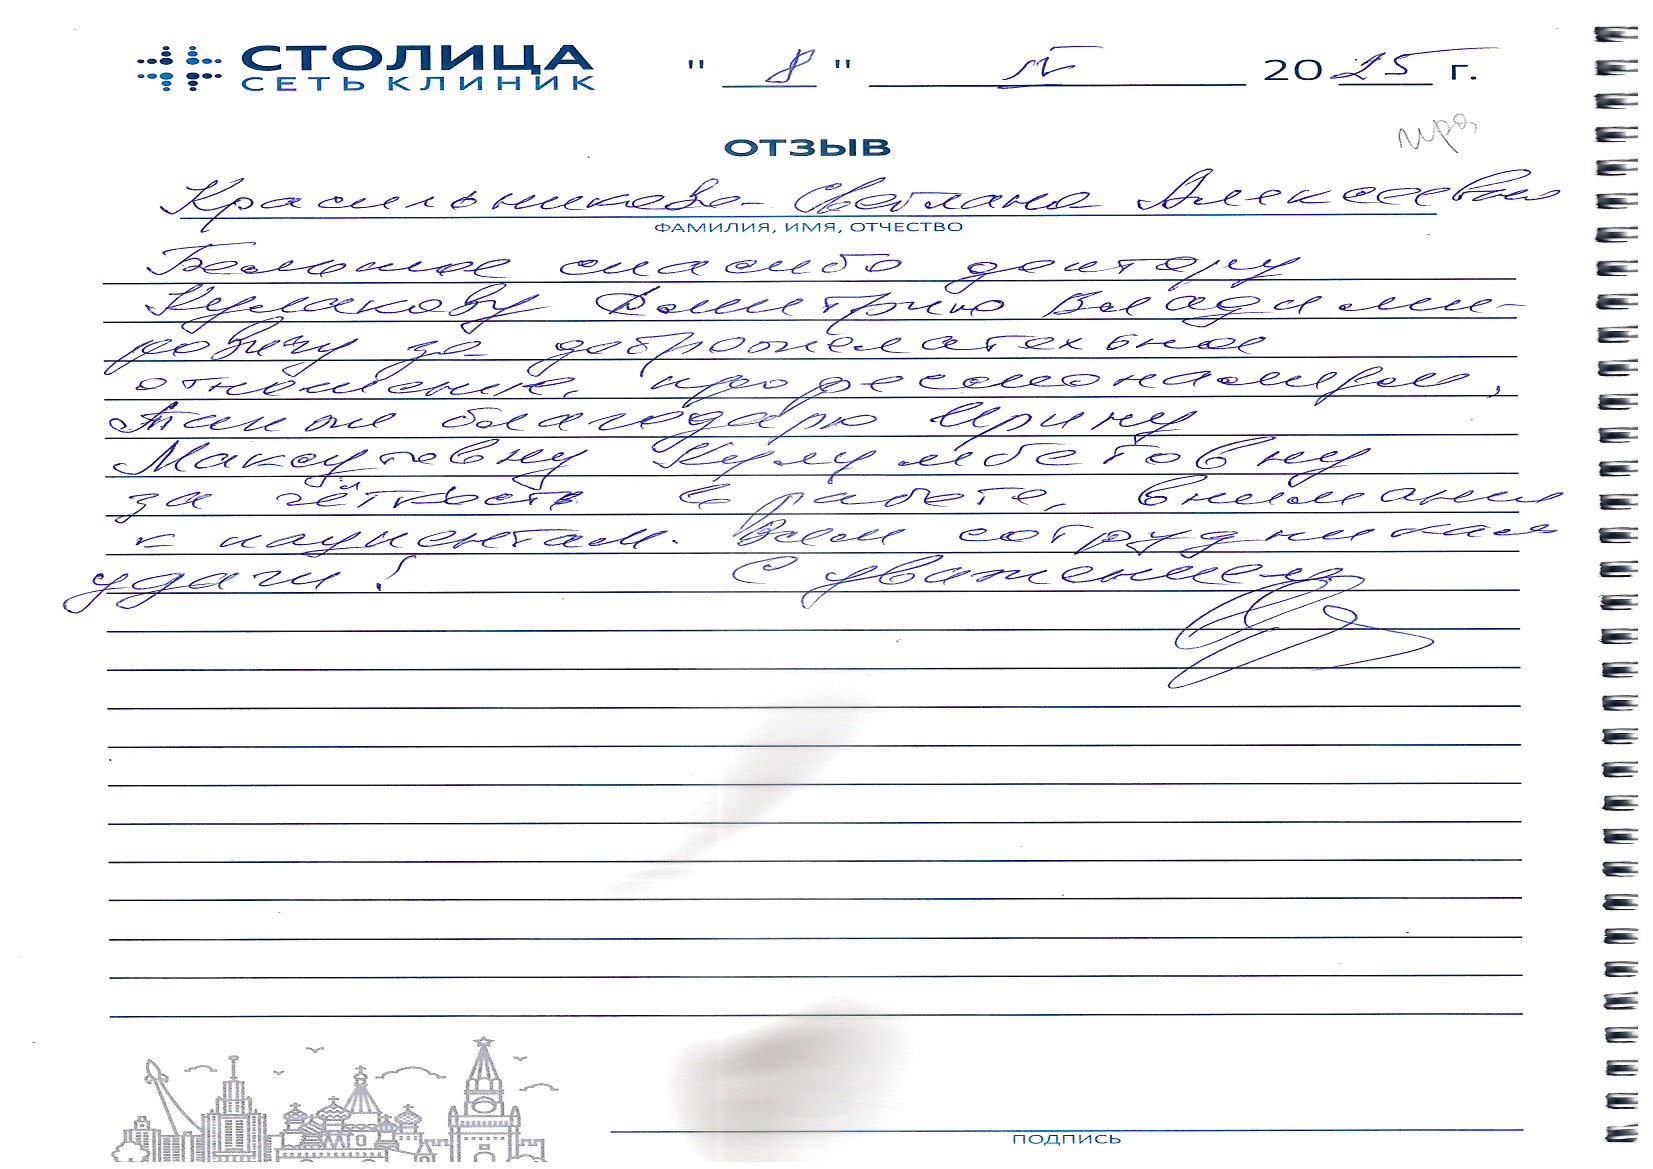 СТОЛИЦА
СЕТЬ КЛИНИК
" 8 " IV 2025 г.
ОТЗЫВ
Красильникова Светлана Алексеевна
ФАМИЛИЯ, ИМЯ, ОТЧЕСТВО
Большое спасибо доктору
Кулакову Дмитрию Влади ми-
ровичу за доброжелательное
отношение, профессионализм.
Также благодарю Ирину
Максутовну Кулумбетовну
за чёткость в работе, внимание
к пациентам. Всем сотрудникам
удачи! С уважением
ПОДПИСЬ